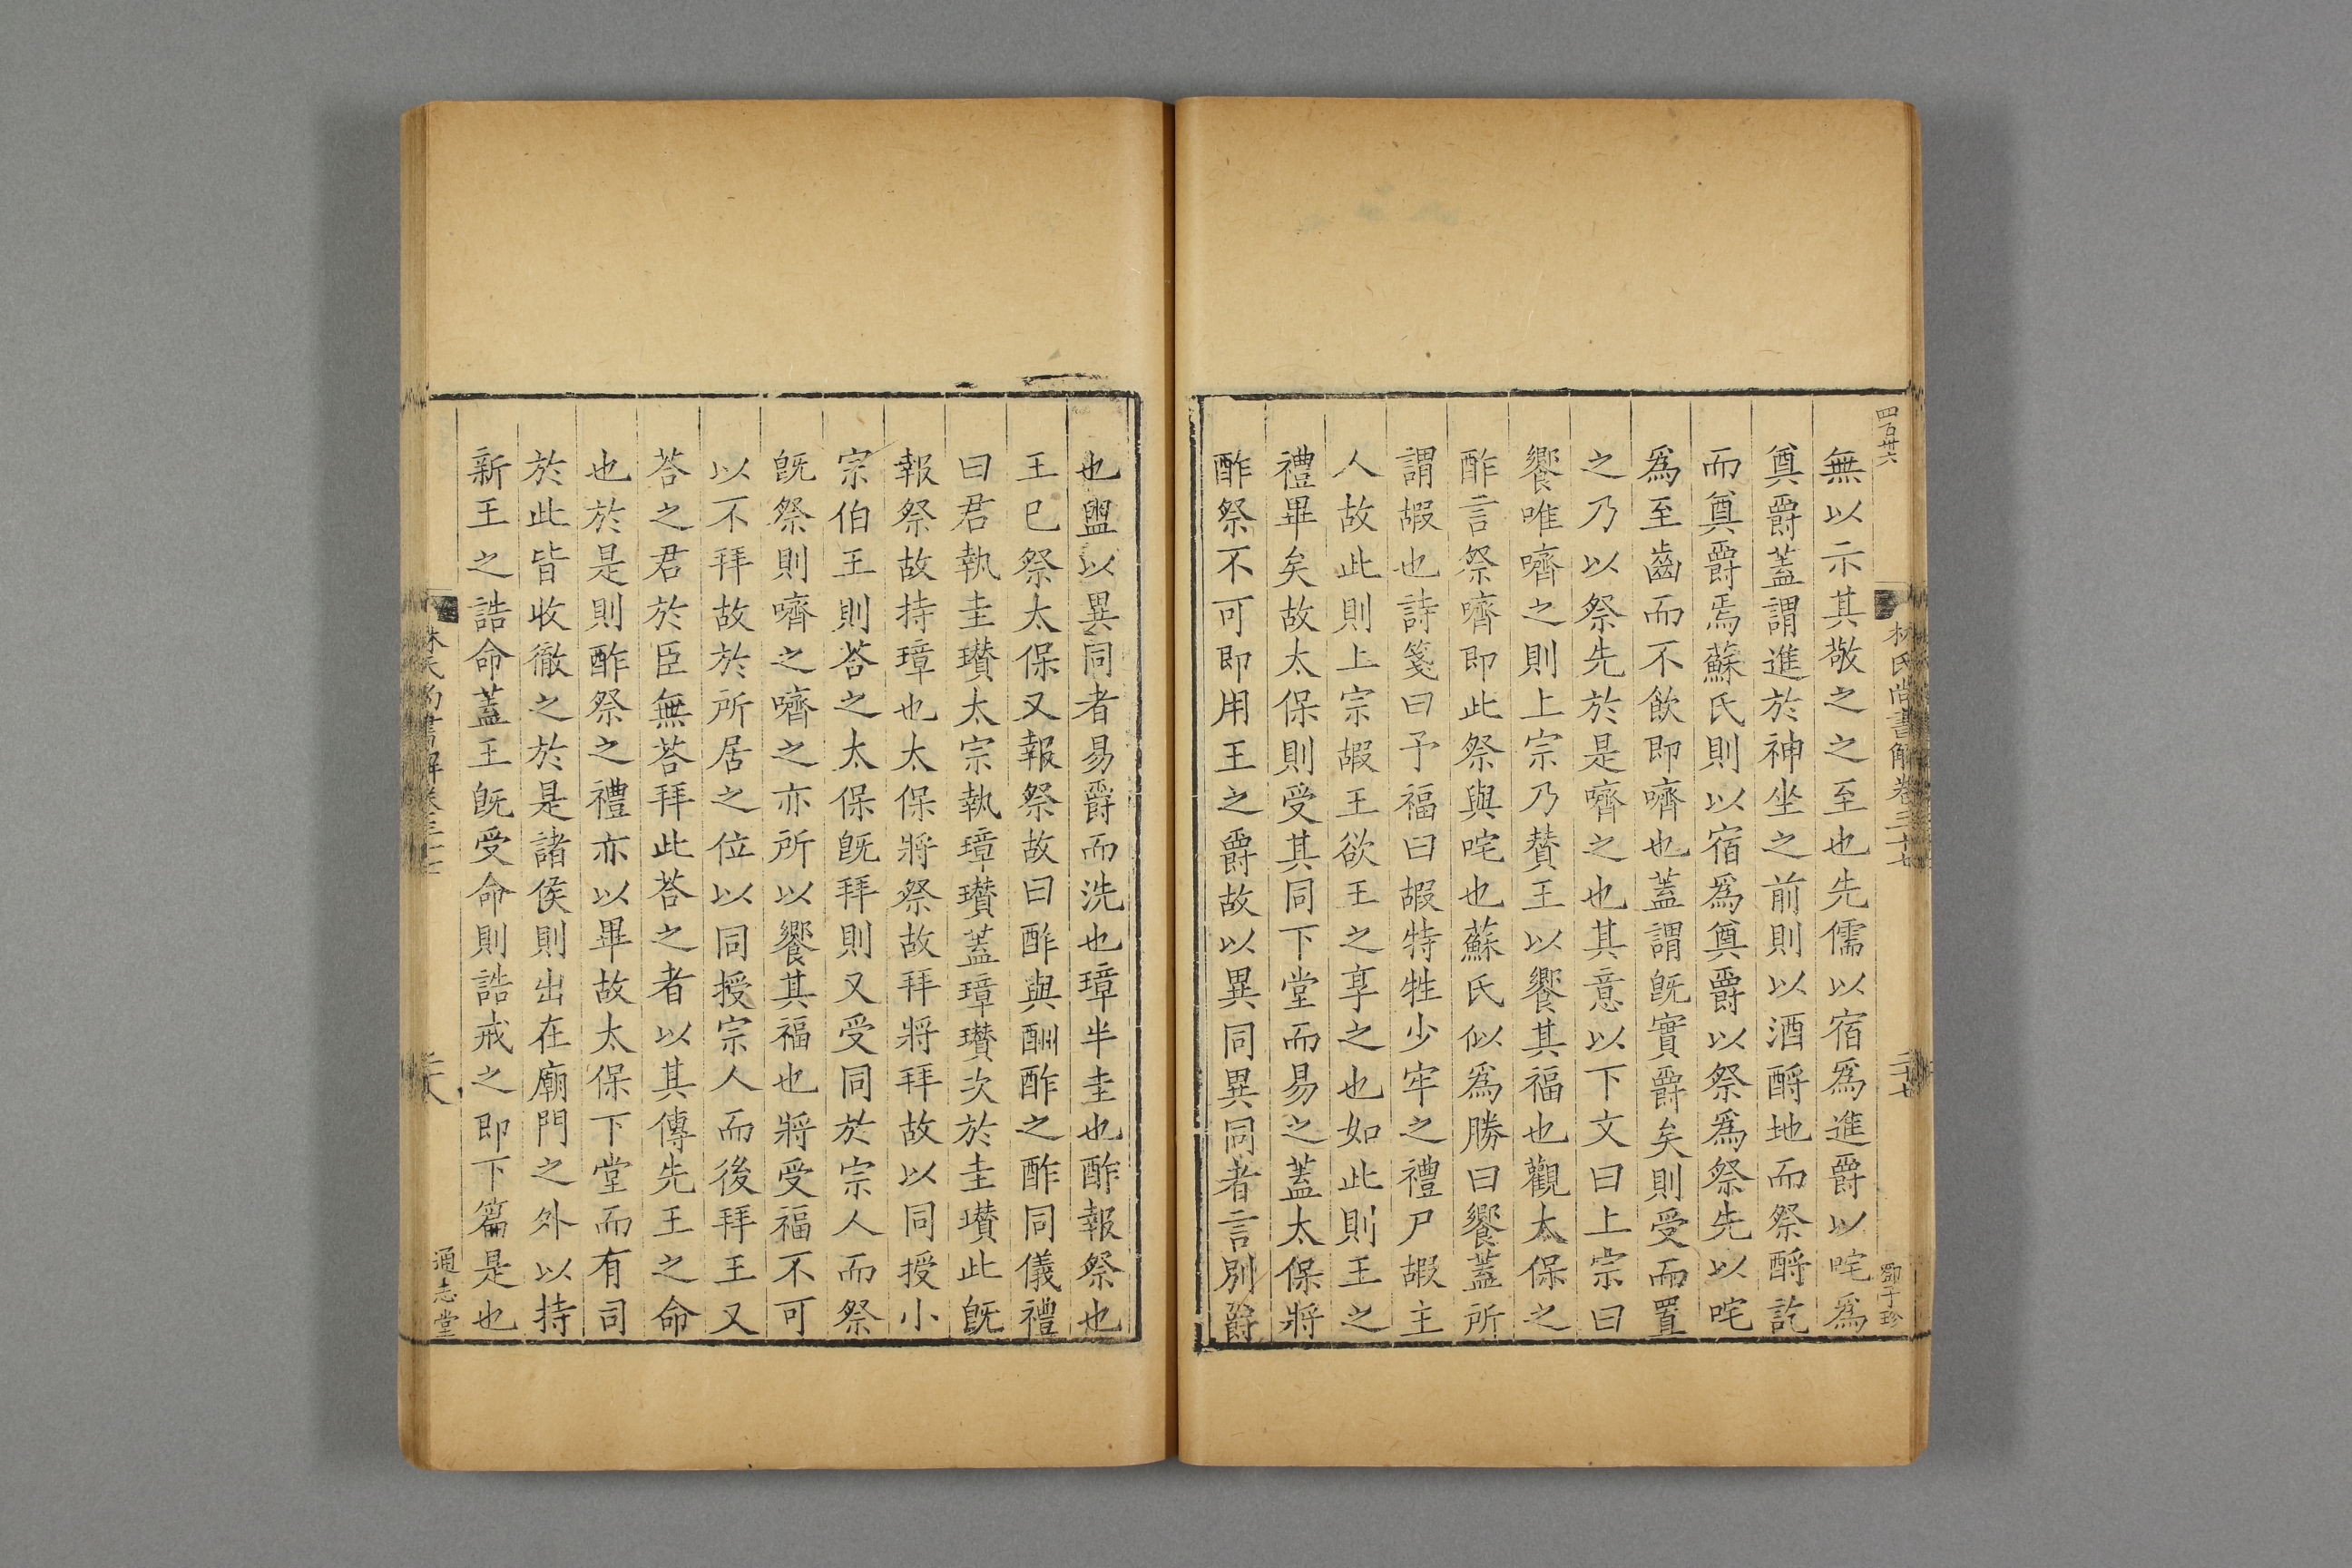 四百卅六
林氏尚書解卷三十七
二十七
鄧子珍
無以示其敬之之至也先儒以宿爲進爵以咤爲
奠爵蓋謂進於神坐之前則以酒酹地而祭酹訖
而奠爵焉蘇氏則以宿爲奠爵以祭爲祭先以咤
爲至齒而不飲即嚌也蓋謂旣實爵矣則受而置
之乃以祭先於是嚌之也其意以下文曰上宗曰
饗唯嚌之則上宗乃賛王以饗其福也觀太保之
酢言祭嚌即此祭與咤也蘇氏似爲勝曰饗蓋所
謂嘏也詩箋曰予福曰嘏特牲少牢之禮尸嘏主
人故此則上宗嘏王欲王之享之也如此則王之
禮畢矣故太保則受其同下堂而易之蓋太保將
酢祭不可即用王之爵故以異同異同者言別爵
也盥以異同者易爵而洗也璋半圭也酢報祭也
王已祭太保又報祭故曰酢與酬酢之酢同儀禮
曰君執圭瓚太宗執璋瓚蓋璋瓚次於圭瓚此旣
報祭故持璋也太保將祭故拜將拜故以同授小
宗伯王則荅之太保旣拜則又受同於宗人而祭
旣祭則嚌之嚌之亦所以饗其福也將受福不可
以不拜故於所居之位以同授宗人而後拜王又
荅之君於臣無荅拜此荅之者以其傳先王之命
也於是則酢祭之禮亦以畢故太保下堂而有司
於此皆收徹之於是諸侯則出在廟門之外以持
新王之誥命蓋王旣受命則誥戒之即下篇是也
林氏尚書解卷三十七
通志堂